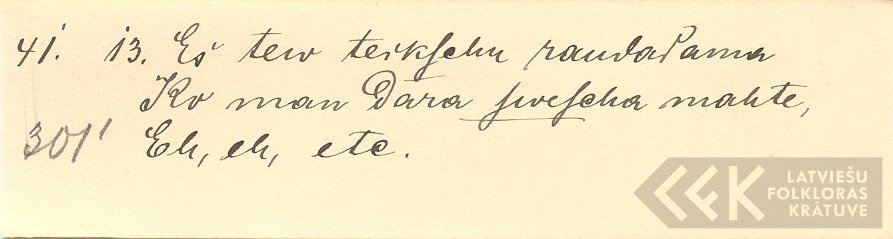 41. 13. Eś tew teikſchu raudadama
Ko man Dara ſweſcha mahte,
301' Eh, eh, etc.
LATVIEŠU
FOLKLORAS
KRĀTUVE